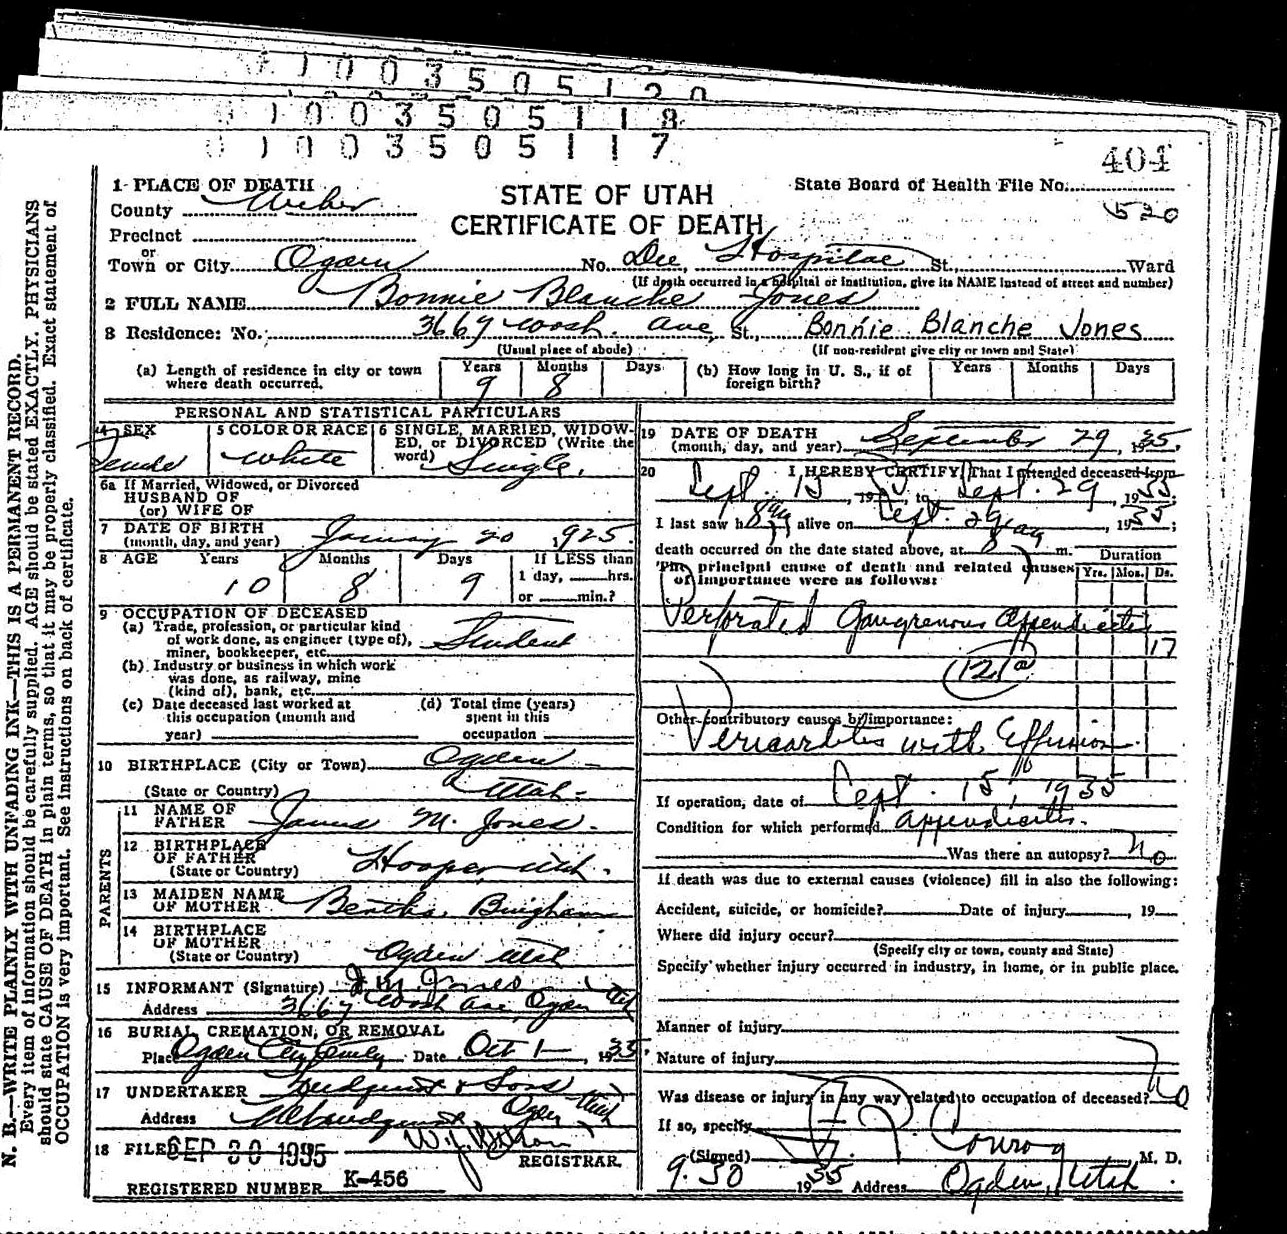 0 1 0 0 3 5 0 5 1 2 0
0 1 0 0 3 5 0 5 1 1 8
0 1 0 0 3 5 0 5 1 1 7
404
1 PLACE OF DEATH
STATE OF UTAH
State Board of Health File No.
County Weber
CERTIFICATE OF DEATH
520
Precinct
or
Town or City Ogden No. Dee Hospital St., Ward
(If death occurred in a hospital or institution, give its NAME instead of street and number)
2 FULL NAME Bonnie Blanche Jones
3 Residence: No. 3667 Wash. Ave, St., Bonnie Blanche Jones
(Usual place of abode) (If non-resident give city or town and State)
(a) Length of residence in city or town where death occurred. Years 9 Months 8 Days
(b) How long in U. S., if of foreign birth? Years Months Days
PERSONAL AND STATISTICAL PARTICULARS
4 SEX Female
5 COLOR OR RACE White
6 SINGLE, MARRIED, WIDOWED, or DIVORCED (Write the word) Single.
6a If Married, Widowed, or Divorced
HUSBAND OF
(or) WIFE OF
7 DATE OF BIRTH
(month, day, and year) January 20, 1925.
8 AGE Years 10 Months 8 Days 9
If LESS than
1 day, hrs.
or min.?
9 OCCUPATION OF DECEASED
(a) Trade, profession, or particular kind
of work done, as engineer (type of),
miner, bookkeeper, etc. Student
(b) Industry or business in which work
was done, as railway, mine
(kind of), bank, etc.
(c) Date deceased last worked at
this occupation (month and
year)
(d) Total time (years)
spent in this
occupation
10 BIRTHPLACE (City or Town) Ogden
(State or Country) Utah
PARENTS
11 NAME OF
FATHER James M. Jones.
12 BIRTHPLACE
OF FATHER
(State or Country) Hooper Utah.
13 MAIDEN NAME
OF MOTHER Bertha Bingham
14 BIRTHPLACE
OF MOTHER
(State or Country) Ogden Utah
15 INFORMANT (Signature) J. M. Jones
Address 3667 Wash Ave, Ogden Ut
16 BURIAL, CREMATION, OR REMOVAL
Place Ogden City Cemetery Date Oct 1 1935
17 UNDERTAKER Lindquist & Sons
Address Ogden Utah
18 FILED SEP 30 1935
REGISTRAR
REGISTERED NUMBER K-456
19 DATE OF DEATH
(month, day, and year) September 29, 1935.
20 I HEREBY CERTIFY, That I attended deceased from
Sept. 15, 1935 to Sept. 29, 1935;
I last saw her alive on Sept. 29, 1935;
death occurred on the date stated above, at 8 m.
The principal cause of death and related causes
of importance were as follows:
Duration
Yrs. Mos. Ds.
Perforated Gangrenous Appendicitis
17
121a
Other contributory causes of importance:
Pericarditis with Effusion
If operation, date of Sept. 15, 1935
Condition for which performed Appendicitis.
Was there an autopsy? No
If death was due to external causes (violence) fill in also the following:
Accident, suicide, or homicide? Date of injury , 19
Where did injury occur?
(Specify city or town, county and State)
Specify whether injury occurred in industry, in home, or in public place.
Manner of injury
Nature of injury
Was disease or injury in any way related to occupation of deceased? No
If so, specify
(Signed) Conroy M. D.
9.30 1935 Address Ogden, Utah
N. B.—WRITE PLAINLY WITH UNFADING INK—THIS IS A PERMANENT RECORD.
Every item of information should be carefully supplied. AGE should be stated EXACTLY. PHYSICIANS
should state CAUSE OF DEATH in plain terms, so that it may be properly classified. Exact statement of
OCCUPATION is very important. See instructions on back of certificate.